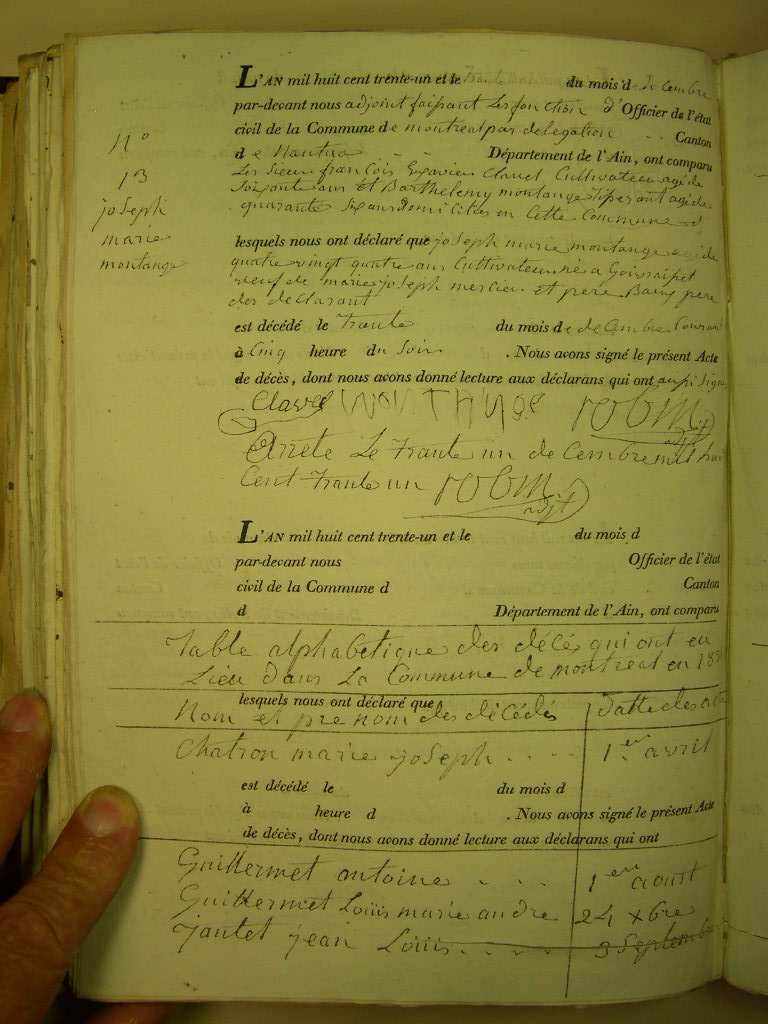 N°
13
joseph
marie
montange
L'AN mil huit cent trente-un et le trante du mois d decembre
par-devant nous adjoint faisant les fonction d'Officier de l'état
civil de la Commune de montreal par delegation Canton
de Nantua Département de l'Ain, ont comparu
Les sieur françois Exavier Clavel Cultivateur agé de
soixante ans et Barthelemy montange agé de
quarante six ans domicilies en Cette Commune
lesquels nous ont déclaré que joseph marie montange agé de
quatre vingt quatre ans Cultivateur né a
veuf de marie joseph mercier et pere
des declarant
est décédé le trante du mois de decembre Courant
à Cinq heure du Soir . Nous avons signé le présent Acte
de décès, dont nous avons donné lecture aux déclarans qui ont aussi signé
Clavel montange robin adjt
Arrete Le trante un decembre mil huit
Cent trante un robin adjt
L'AN mil huit cent trente-un et le du mois d
par-devant nous Officier de l'état
civil de la Commune d Canton
d Département de l'Ain, ont comparu
Table alphabetique des décés qui ont eu
Lieu dans La Commune de montreal en 1831
lesquels nous ont déclaré que
Nom et pre nom des décédés datte des actes
Chatron marie joseph . . . . 1er avril
est décédé le du mois d
à heure d . Nous avons signé le présent Acte
de décès, dont nous avons donné lecture aux déclarans qui ont
Guillermet antoine . . . 1er aoust
Guillermet Louis marie andre 24 xbre
jantet jean Louis . . . . 3 Septembre